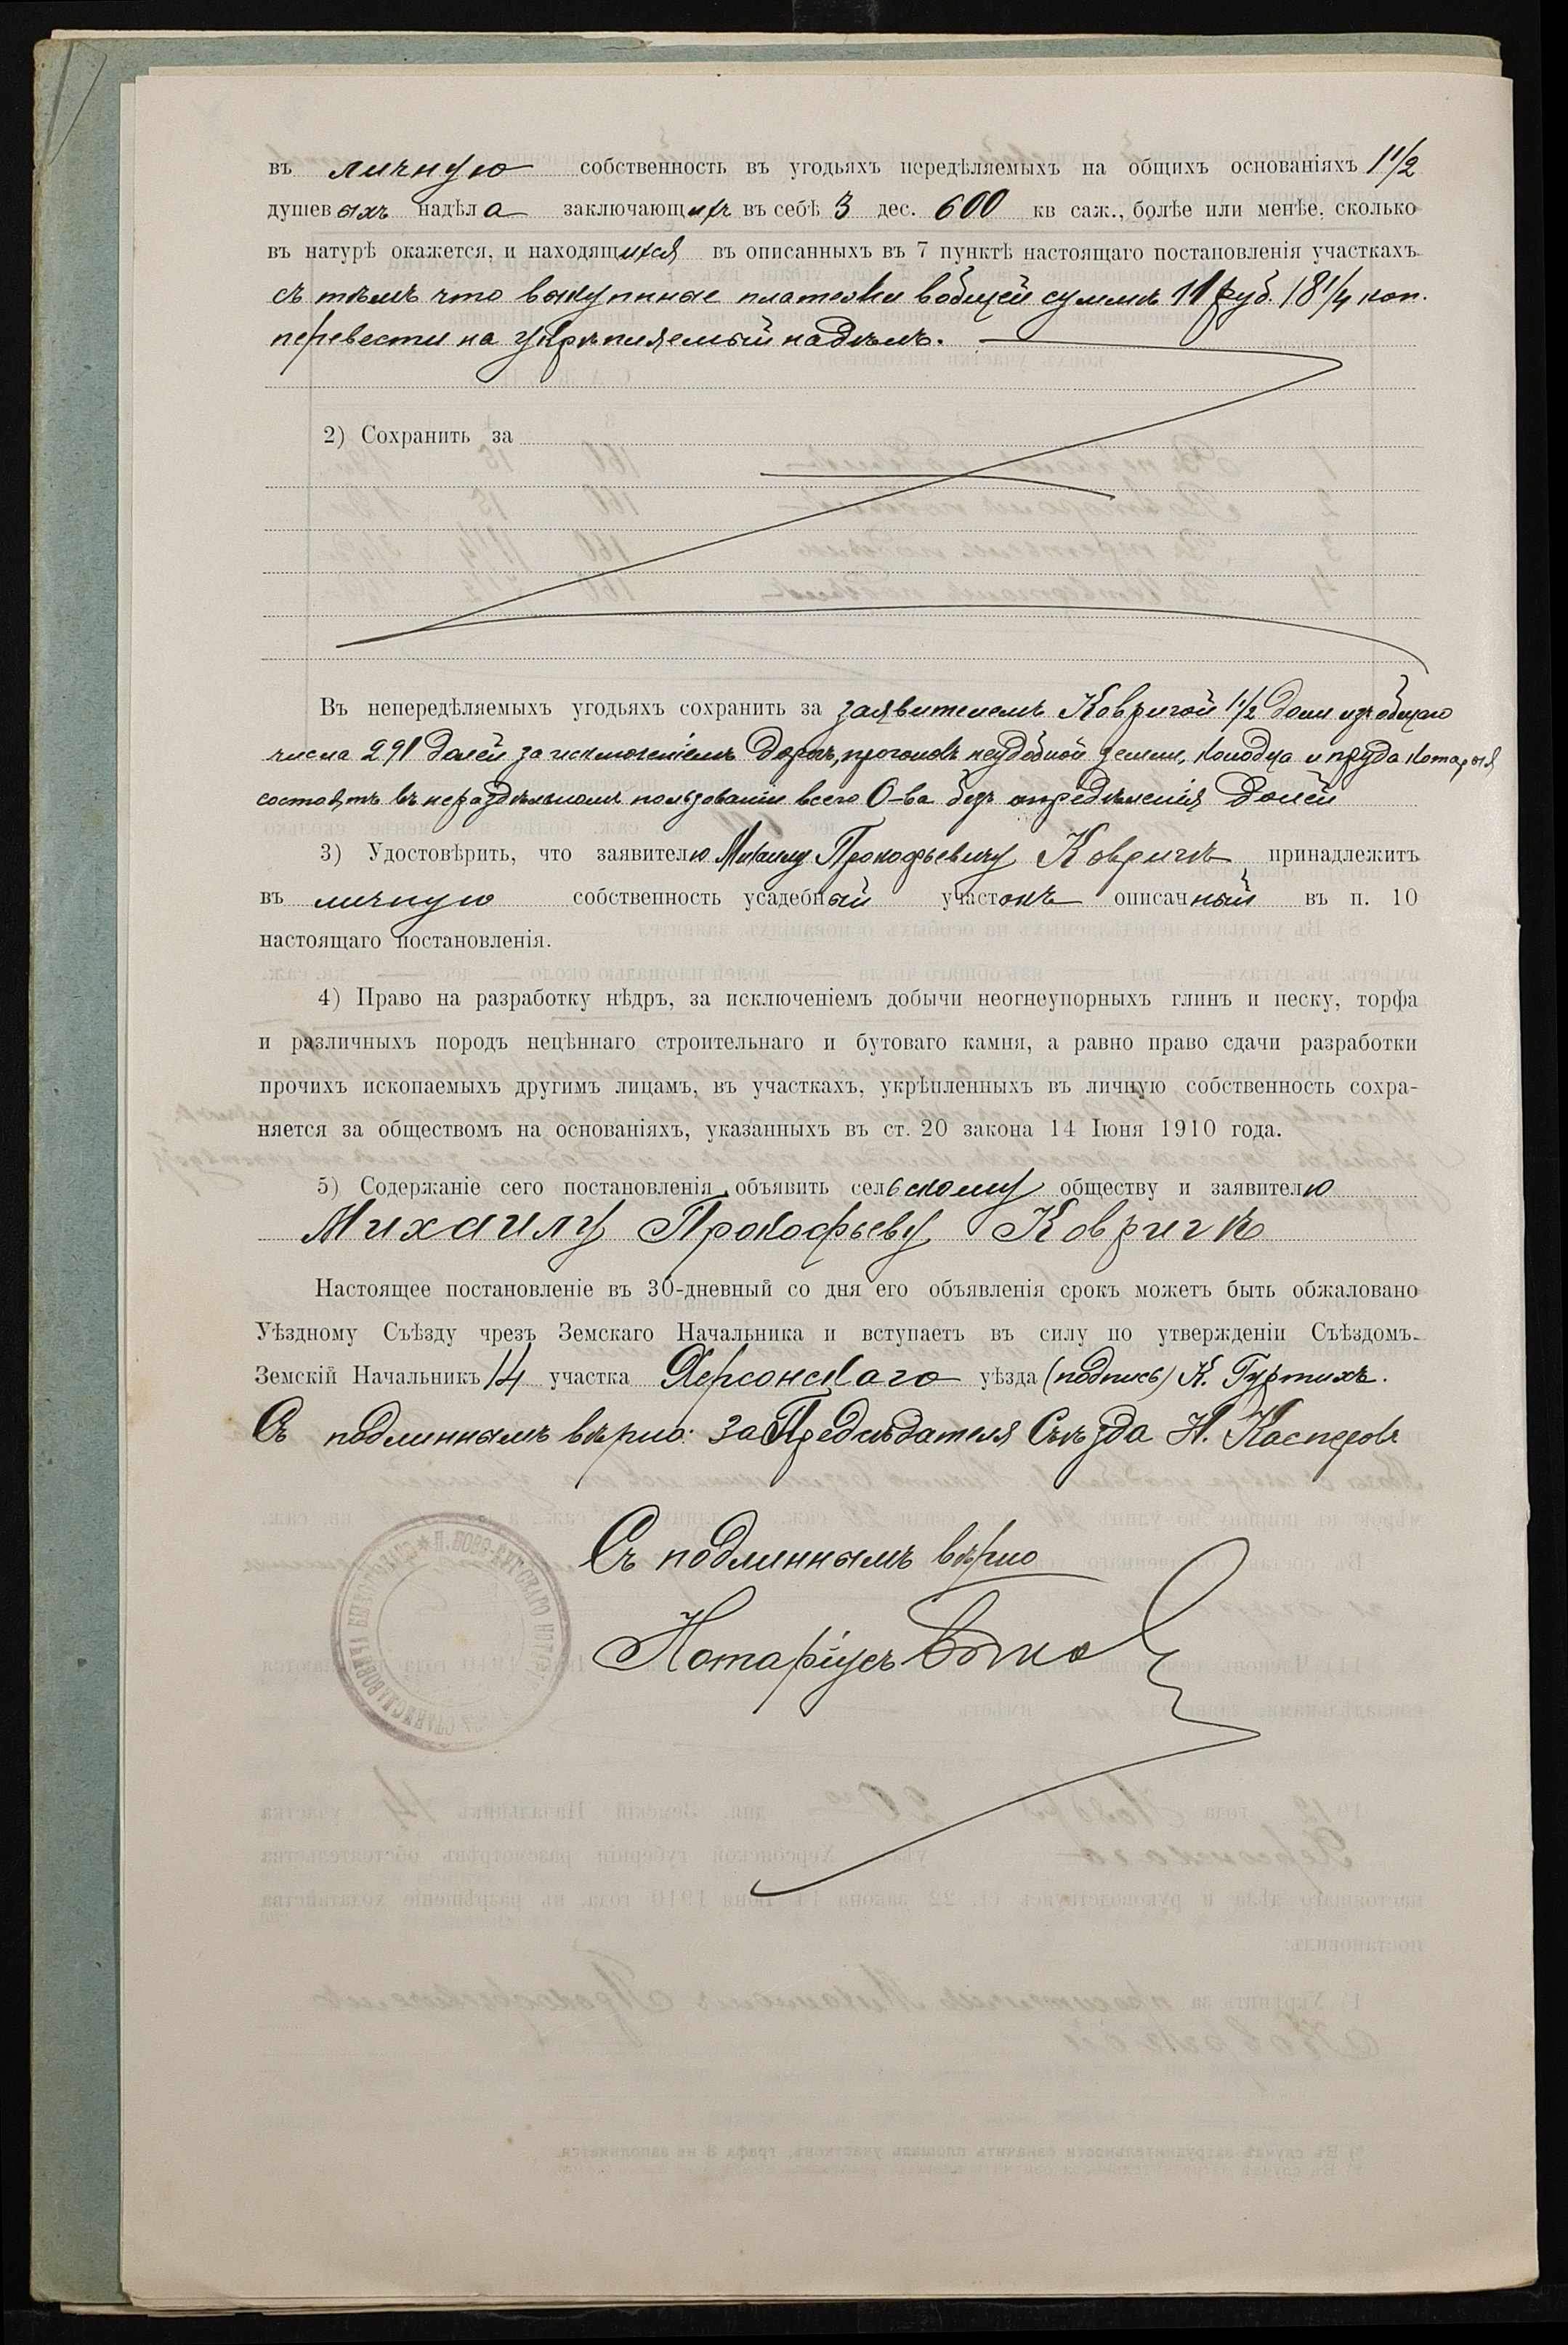 въ личную собственность въ угодьяхъ передѣляемыхъ на общихъ основаніяхъ 1 1/2
душевыхъ надѣла заключающихъ въ себѣ 3 дес. 600 кв саж., болѣе или менѣе, сколько
въ натурѣ окажется, и находящихся въ описанныхъ въ 7 пунктѣ настоящаго постановленія участкахъ
съ тѣмъ что выкупные платежи вобщей суммѣ 11 руб. 18 1/4 коп.
перевести на укрѣпляемый надѣлъ.
2) Сохранить за
Въ непередѣляемыхъ угодьяхъ сохранить за заявителемъ Ковригой 1 1/2 доли изъ общаго
числа 291 долей за исключеніемъ дорогъ, прогоновъ неудобной земли, колодца и пруда которыя
состоятъ въ нераздѣльномъ пользованіи всего О-ва безъ опредѣленія долей
3) Удостовѣрить, что заявителю Михаилу Прокофьевичу Ковригѣ принадлежитъ
въ личную собственность усадебный участокъ описанный въ п. 10
настоящаго постановленія.
4) Право на разработку нѣдръ, за исключеніемъ добычи неогнеупорныхъ глинъ и песку, торфа
и различныхъ породъ нецѣннаго строительнаго и бутоваго камня, а равно право сдачи разработки
прочихъ ископаемыхъ другимъ лицамъ, въ участкахъ, укрѣпленныхъ въ личную собственность сохра-
няется за обществомъ на основаніяхъ, указанныхъ въ ст. 20 закона 14 Іюня 1910 года.
5) Содержаніе сего постановленія объявить сельскому обществу и заявителю
Михаилу Прокофьеву Ковригѣ
Настоящее постановленіе въ 30-дневный со дня его объявленія срокъ можетъ быть обжаловано
Уѣздному Съѣзду чрезъ Земскаго Начальника и вступаетъ въ силу по утвержденіи Съѣздомъ.
Земскій Начальникъ 14 участка Херсонскаго уѣзда (подпись) К. Гуртихъ.
Съ подлиннымъ вѣрно: За Предсѣдателя Съѣзда Н. Касперовъ
Съ подлиннымъ вѣрно
Нотаріусъ